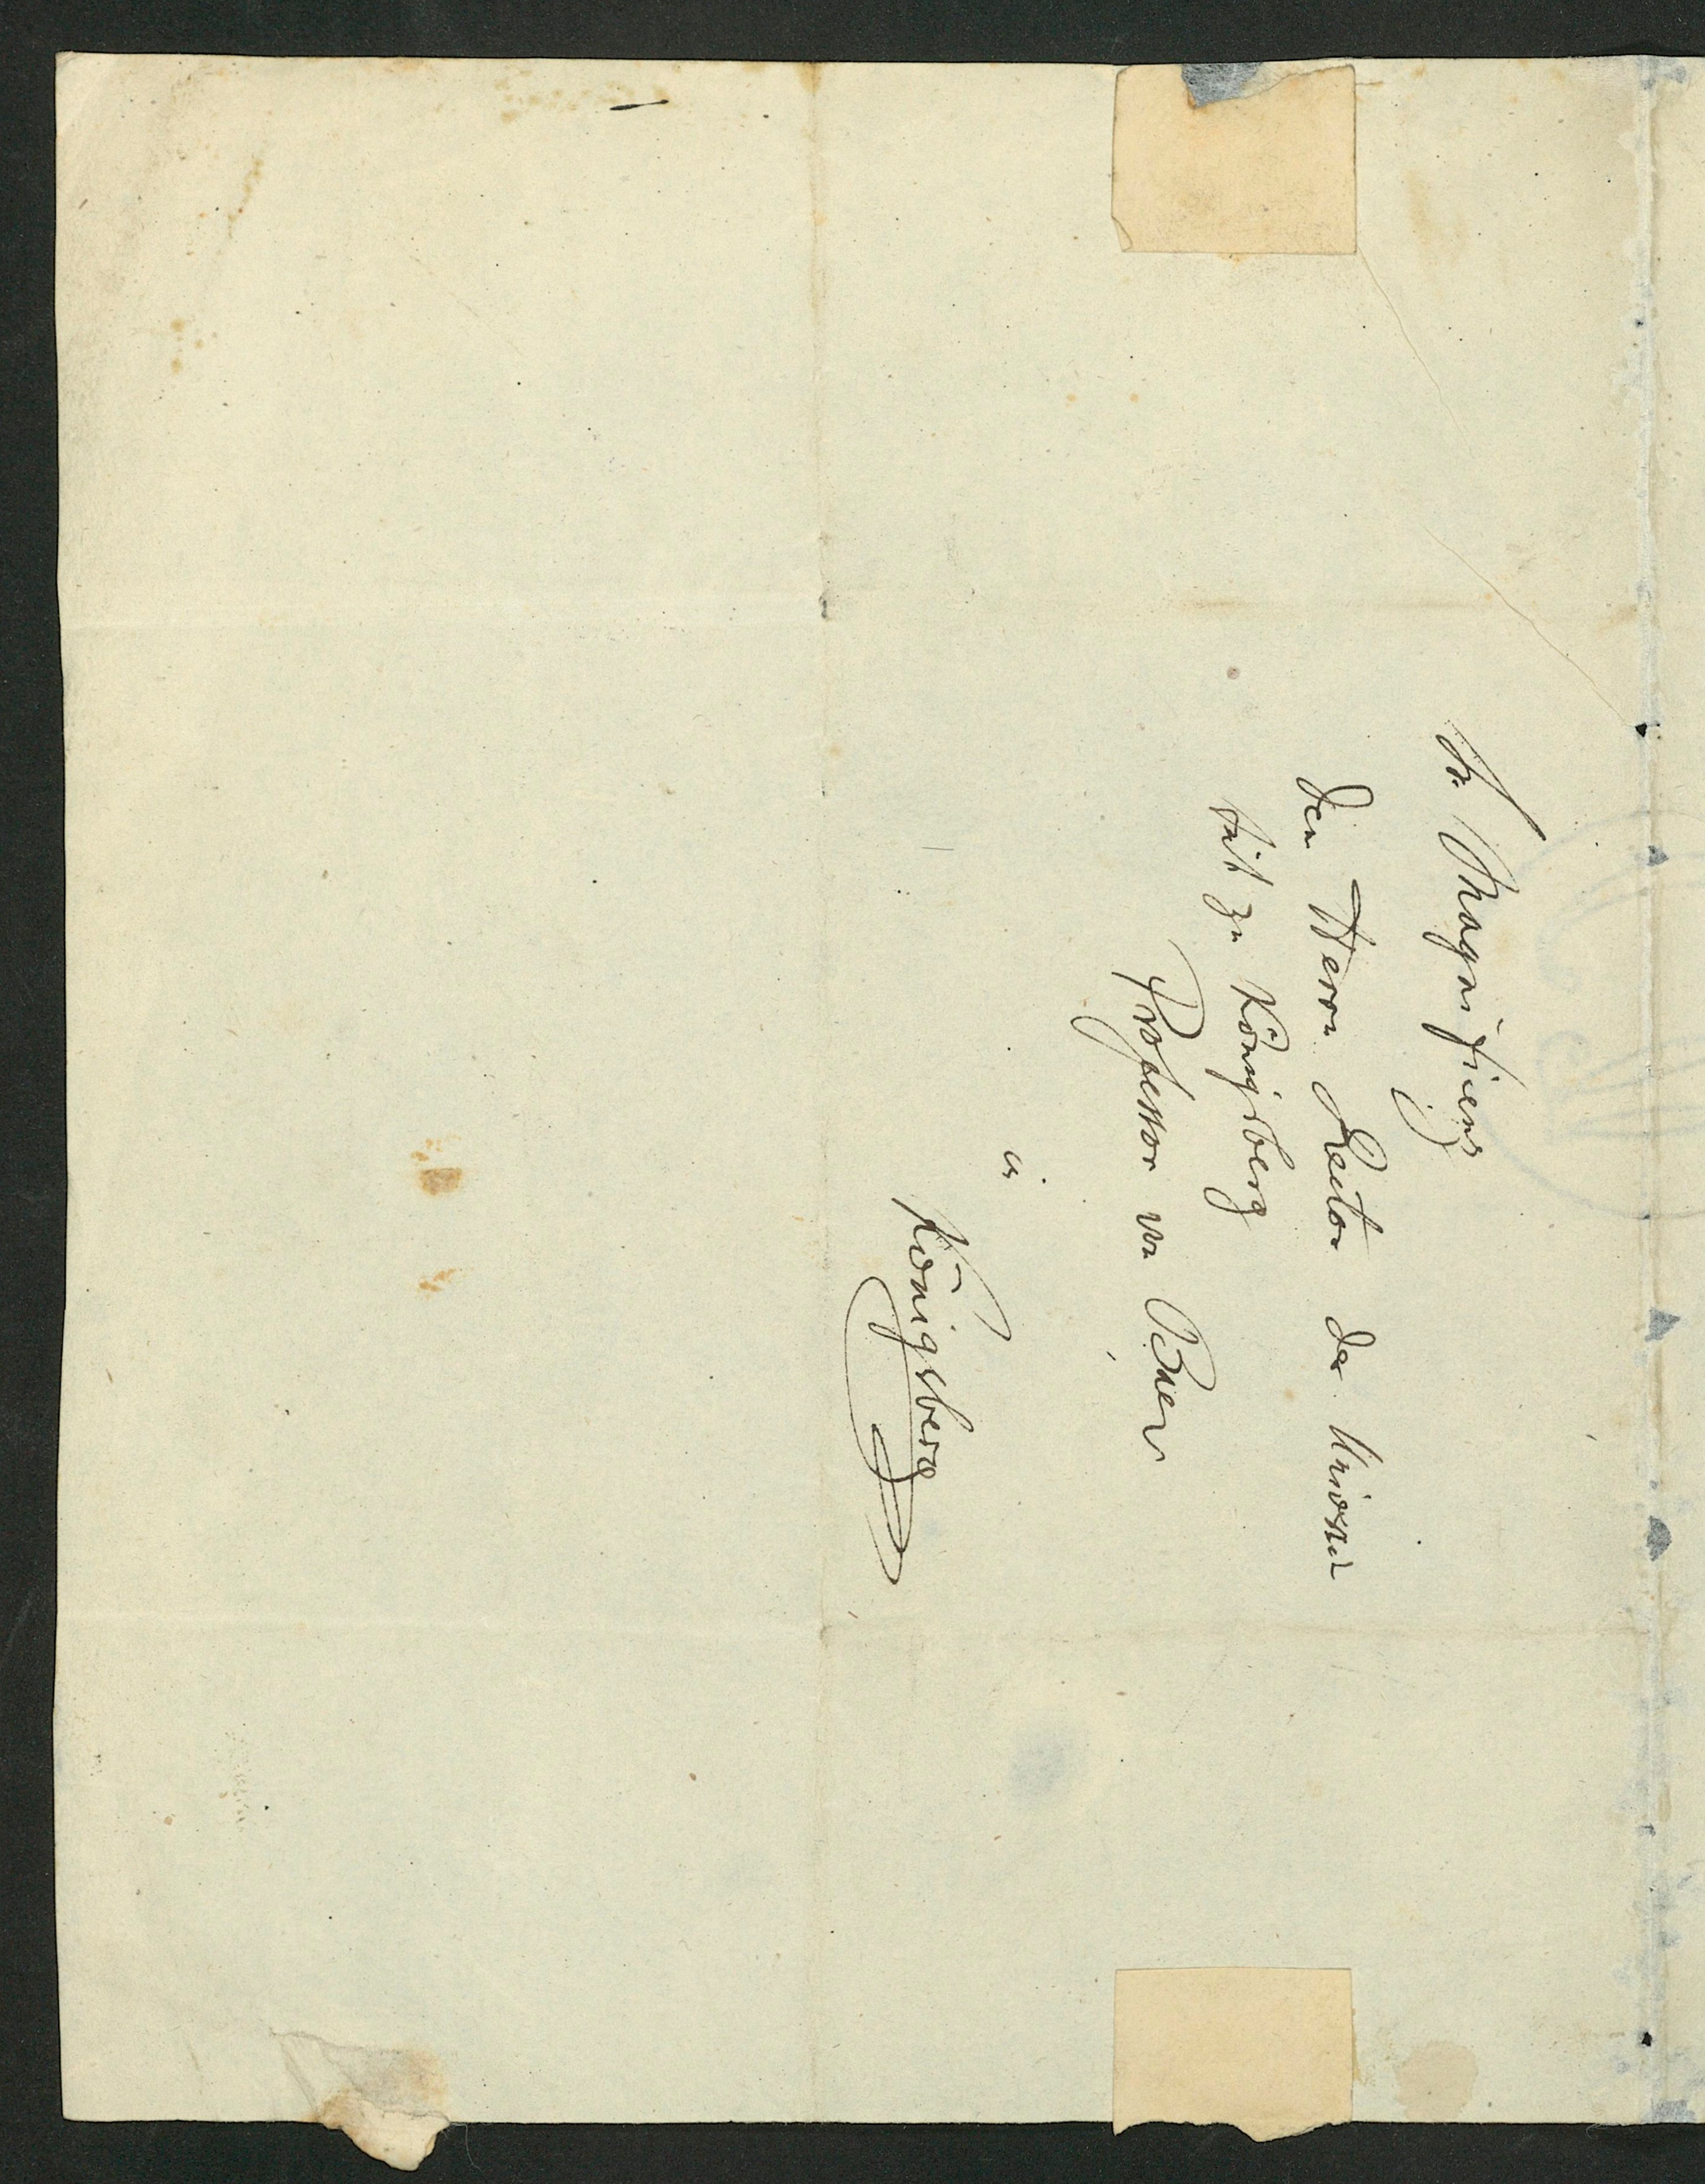 Sr. Magnificenz
dem Herrn Rector der Universi
tät zu Königsberg
Professor von Baer
in
Königsberg